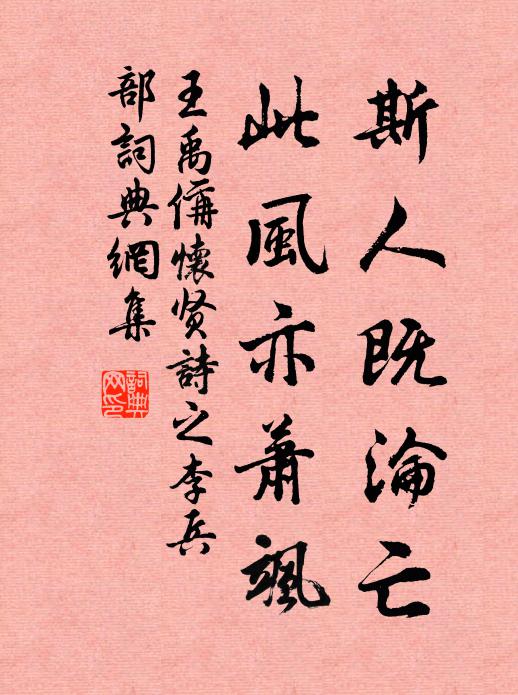 斯人既淪亡
此風亦蕭颯
王禹偁懷贤詩之李兵
部詞典網集
詞典
网印